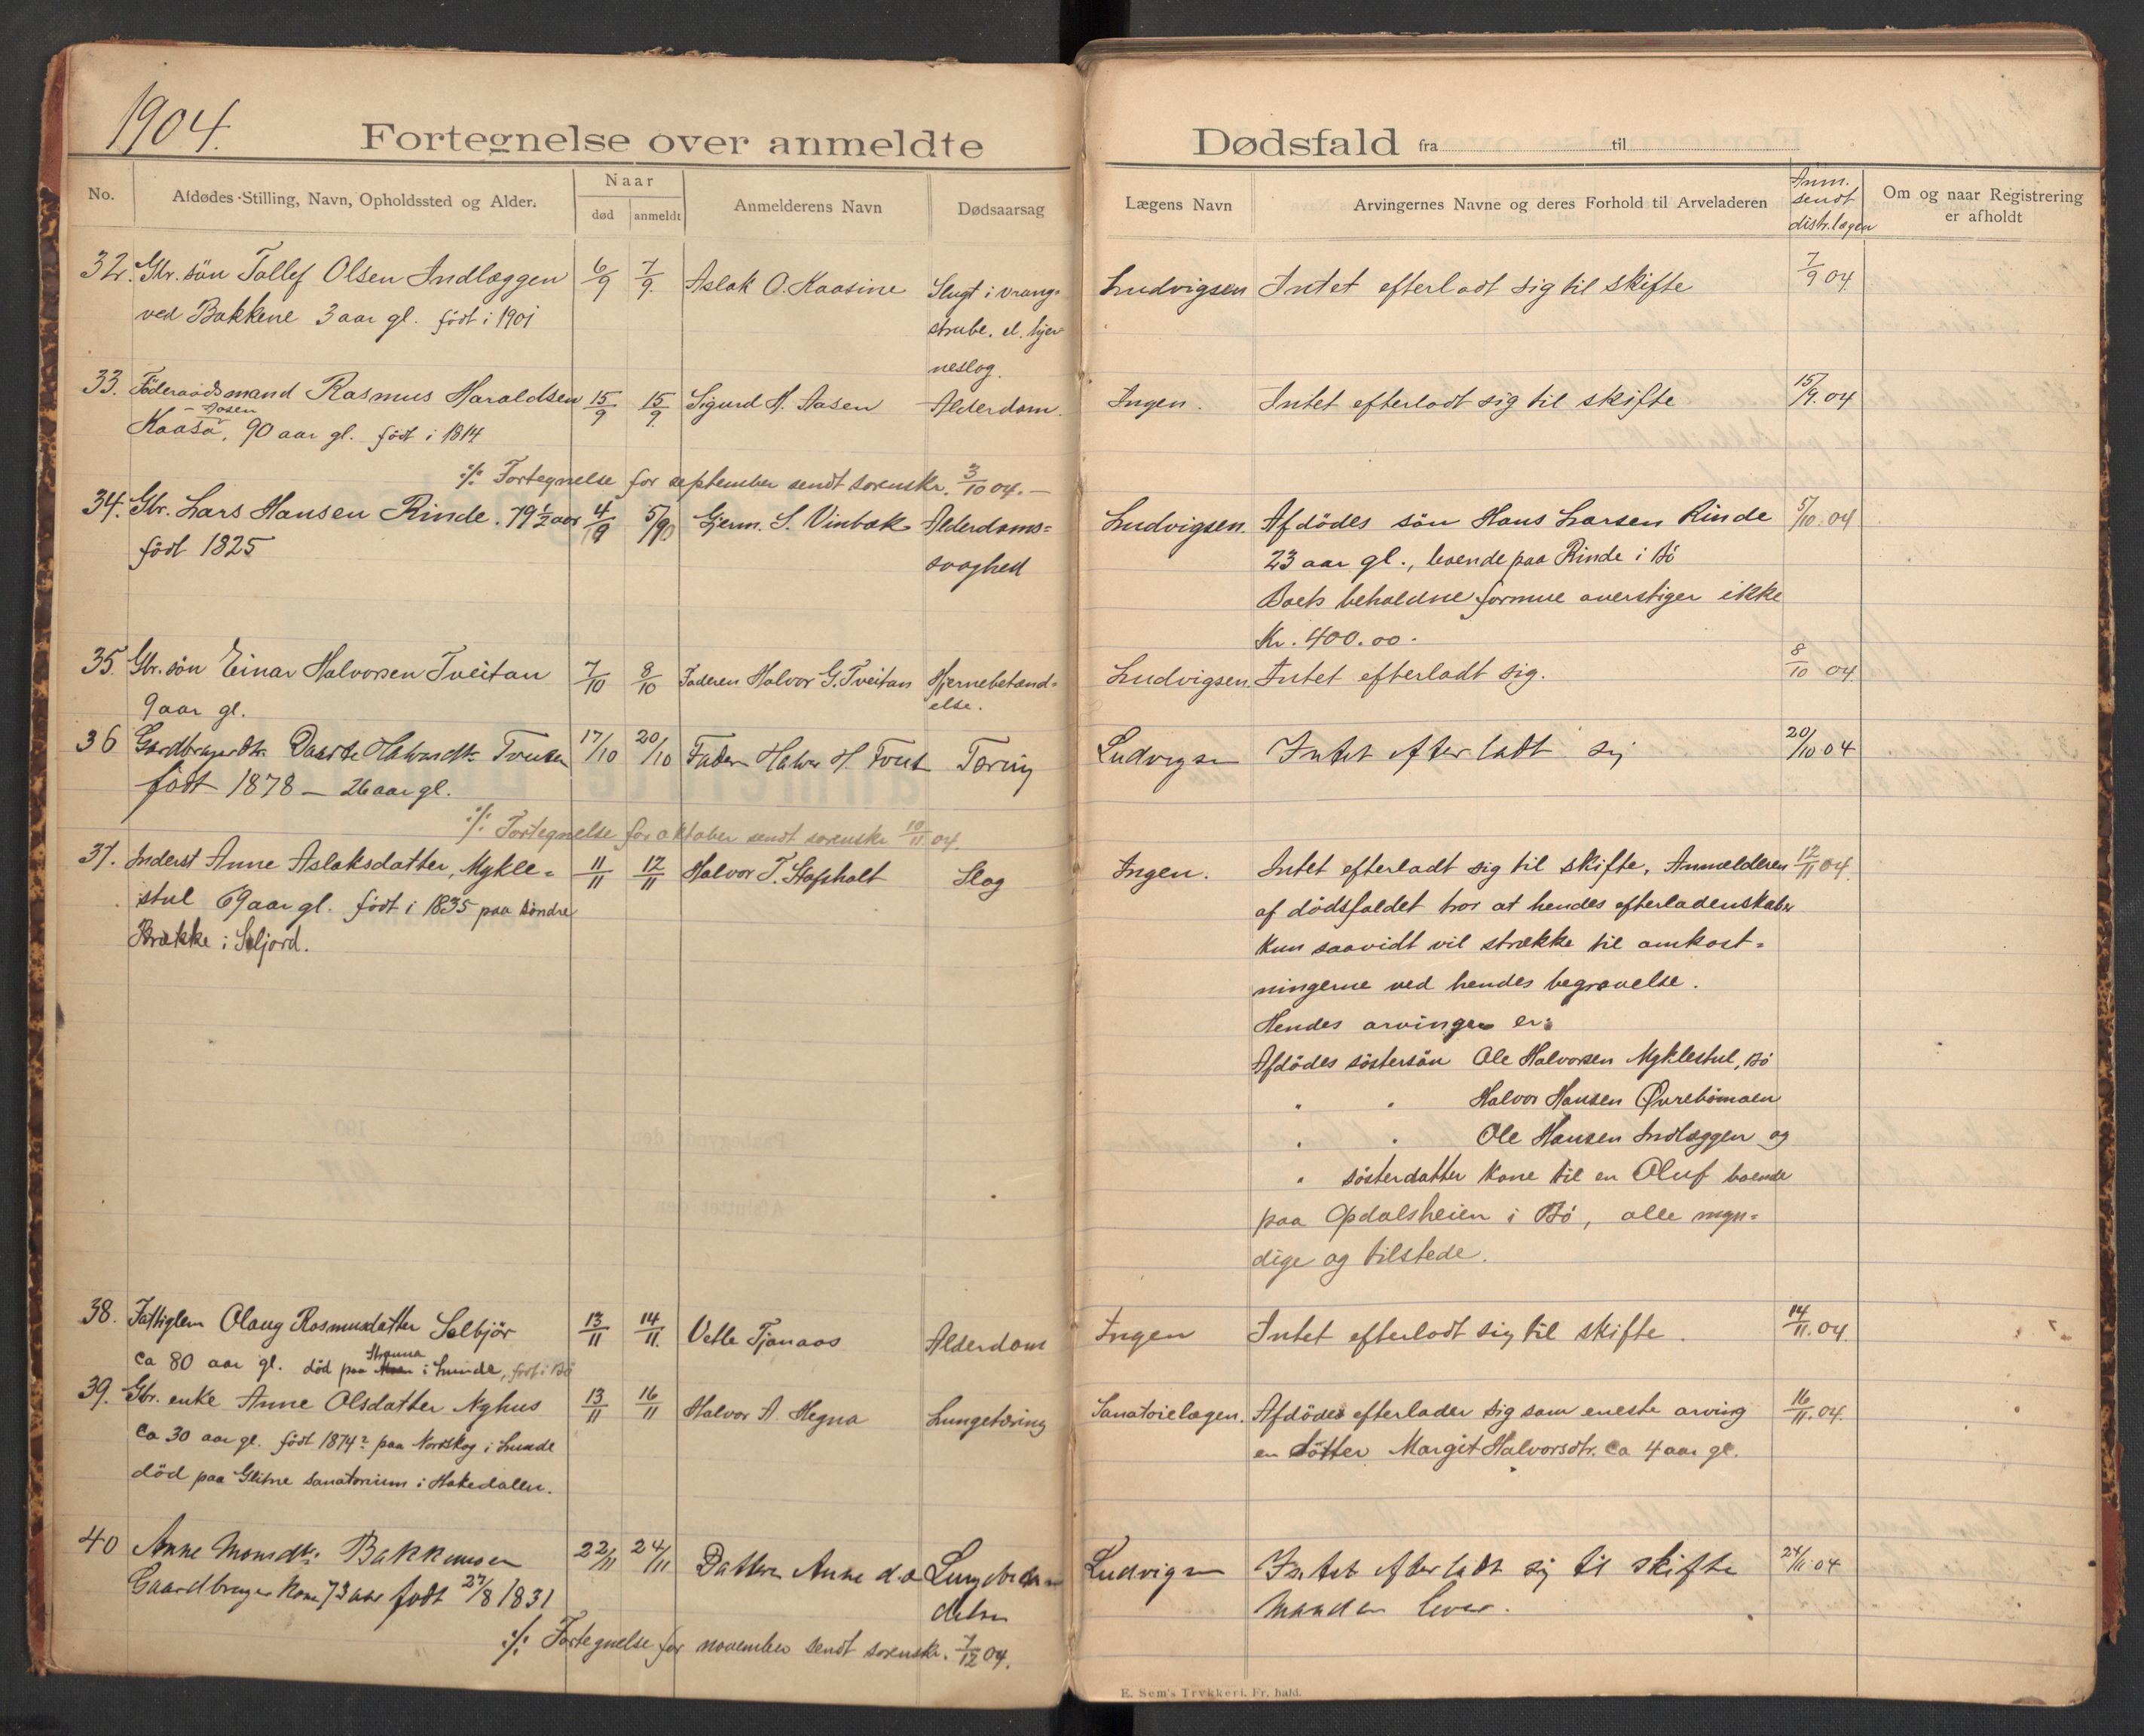 1904.
Fortegnelse over anmeldte Dødsfald fra til
No.
Afdødes Stilling, Navn, Opholdssted og Alder.
Naar
død
anmeldt
Anmelderens Navn
Dødsaarsag
Lægens Navn
Arvingernes Navne og deres Forhold til Arveladeren
Anm. sendt distr.lægen
Om og naar Registrering er afholdt
32. Gbr. sön Tollef Olsen Indlæggen 6/9 7/9 Aslak O. Kaasine Slugt i vrang- Ludvigsen Intet efterladt sig til skifte 7/9 04
ved Bakkene 3 aar gl. födt i 1901 strube. el. hjer
neslag.
33. Föderaadsmand Rasmus Haraldsen 15/9 15/9 Sigurd H. Aasen Alderdom. Ingen. Intet efterladt sig til skifte 15/9.04
- Aasen
Kaasa, 90 aar gl. födt i 1814
./. Fortegnelse for september sendt sorenskr. 3/10 04. -
34. Gbr. Lars Hansen Rinde. 79 1/2 aar 4/10 5/10 Gjerm. S. Vinbak Alderdoms= Ludvigsen. Afdödes sön Hans Larsen Rinde 5/10.04
födt 1825 svaghed 23 aar gl., boende paa Rinde i Bö
Boets beholdne formue overstiger ikke
Kr. 400.00.
35. Gbr. sön Einar Halvorsen Tveitan 7/10 8/10 Faderen Halvor G. Tveitan Hjernebetænd= Ludvigsen. Intet efterladt sig. 8/10 04.
9 aar gl. else.
36 Gardbrugerdtr. Halvorsdtr. 17/10 20/10 Fader Halvor H. Tæring Ludvigsen Intet efterladt sig 20/10 04
födt 1878 - 26 aar gl.
./. Fortegnelse for oktober sendt sorenskr 10/11 04.
37. Inderst Anne Aslaksdatter, Mykle= 11/11 12/11 Halvor T. Stafsholt Slag Ingen. Intet efterladt sig til skifte, Anmelderen 12/11 04.
stul 69 aar gl. födt i 1835 paa söndre af dödsfaldet tror at hendes efterladenskaber
Brække i Seljord. kun saavidt vil strække til omkost=
ningerne ved hendes begravelse.
Hendes arvinger er:
Afdödes söstersön Ole Halvorsen Myklestul, Bö
" " Halvor Hansen Øvrebömoen
" " Ole Hansen Indlæggen og
" sösterdatter kone til en Oluf boende
paa Opdalsheien i Bö, alle myn=
dige og tilstede.
38. Fattiglem Olaug Rasmusdatter Selbjör 13/11 14/11. Vetle Tjonaas Alderdom Ingen Intet efterladt sig til skifte. 14/11.04.
Stranna
ca 80 aar gl. död paa i Lunde, födt i Bö
39. Gbr. enke Anne Olsdatter Nyhus 13/11 16/11 Halvor A. Hegna Lungetæring Sanatorielægen. Afdöde efterlader sig som eneste arving 16/11.04.
ca 30 aar gl. födt 1874? paa Nordskog i Lunde en dötter Margit Halvorsdtr. ca 4 aar gl.
död paa Glitre sanatorium i Hakedalen.
40 Anne Monsdtr. Bakkemoen 22/11 24/11 Datter Anne do Lungebetæn Ludvigsen Intet efterladt sig til skifte 24/11 04
Gaardbruger kone 73 aar födt 27/8 1831 delse Manden lever.
./. Fortegnelse for november sendt sorenskr. 7/12 04.
E. Sem's Trykkeri, Fr. hald.